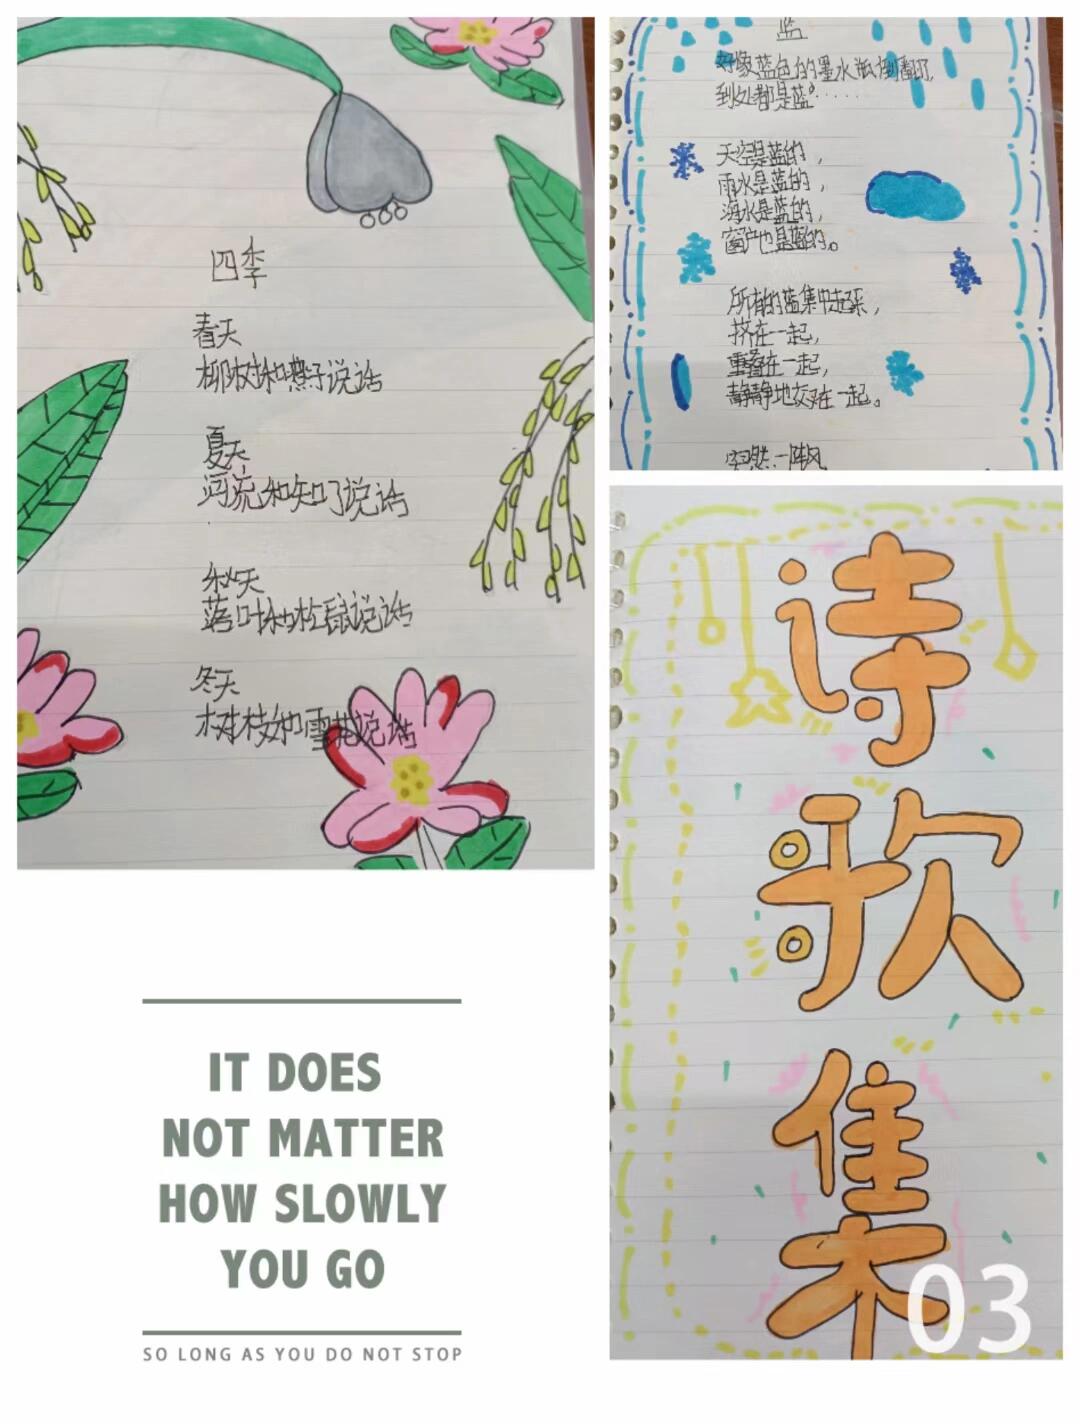 四季
春天
柳树和燕子说话
夏天
河流和知了说话
秋天
落叶和松鼠说话
冬天
树枝和雪花说话
蓝
好像蓝色的墨水瓶倒翻了,
到处都是蓝。……
天空是蓝的,
雨水是蓝的,
海水是蓝的,
窗户也是蓝的。
所有的蓝集中起来,
挤在一起,
重叠在一起,
静静地交对在一起。
突然一阵风
诗歌集
03
IT DOES
NOT MATTER
HOW SLOWLY
YOU GO
SO LONG AS YOU DO NOT STOP